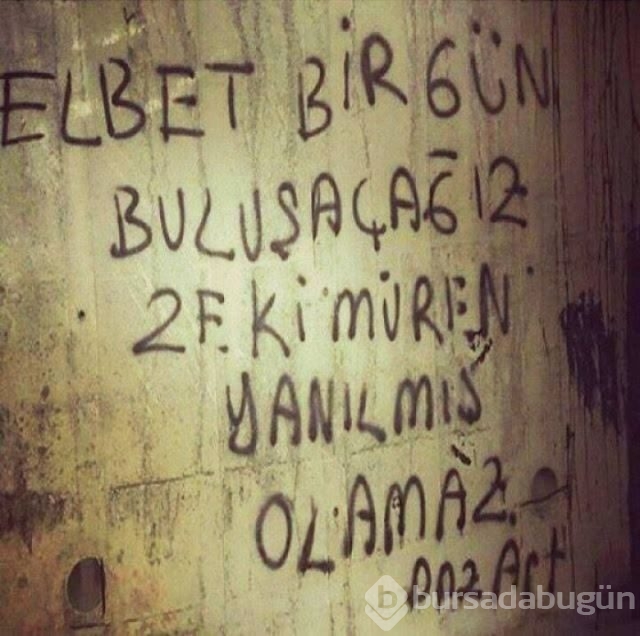 ELBET BİR GÜN
BULUŞAÇAĞIZ
ZEKİ MÜREN
YANILMIŞ
OLAMAZ.
Art
b bursadabugün